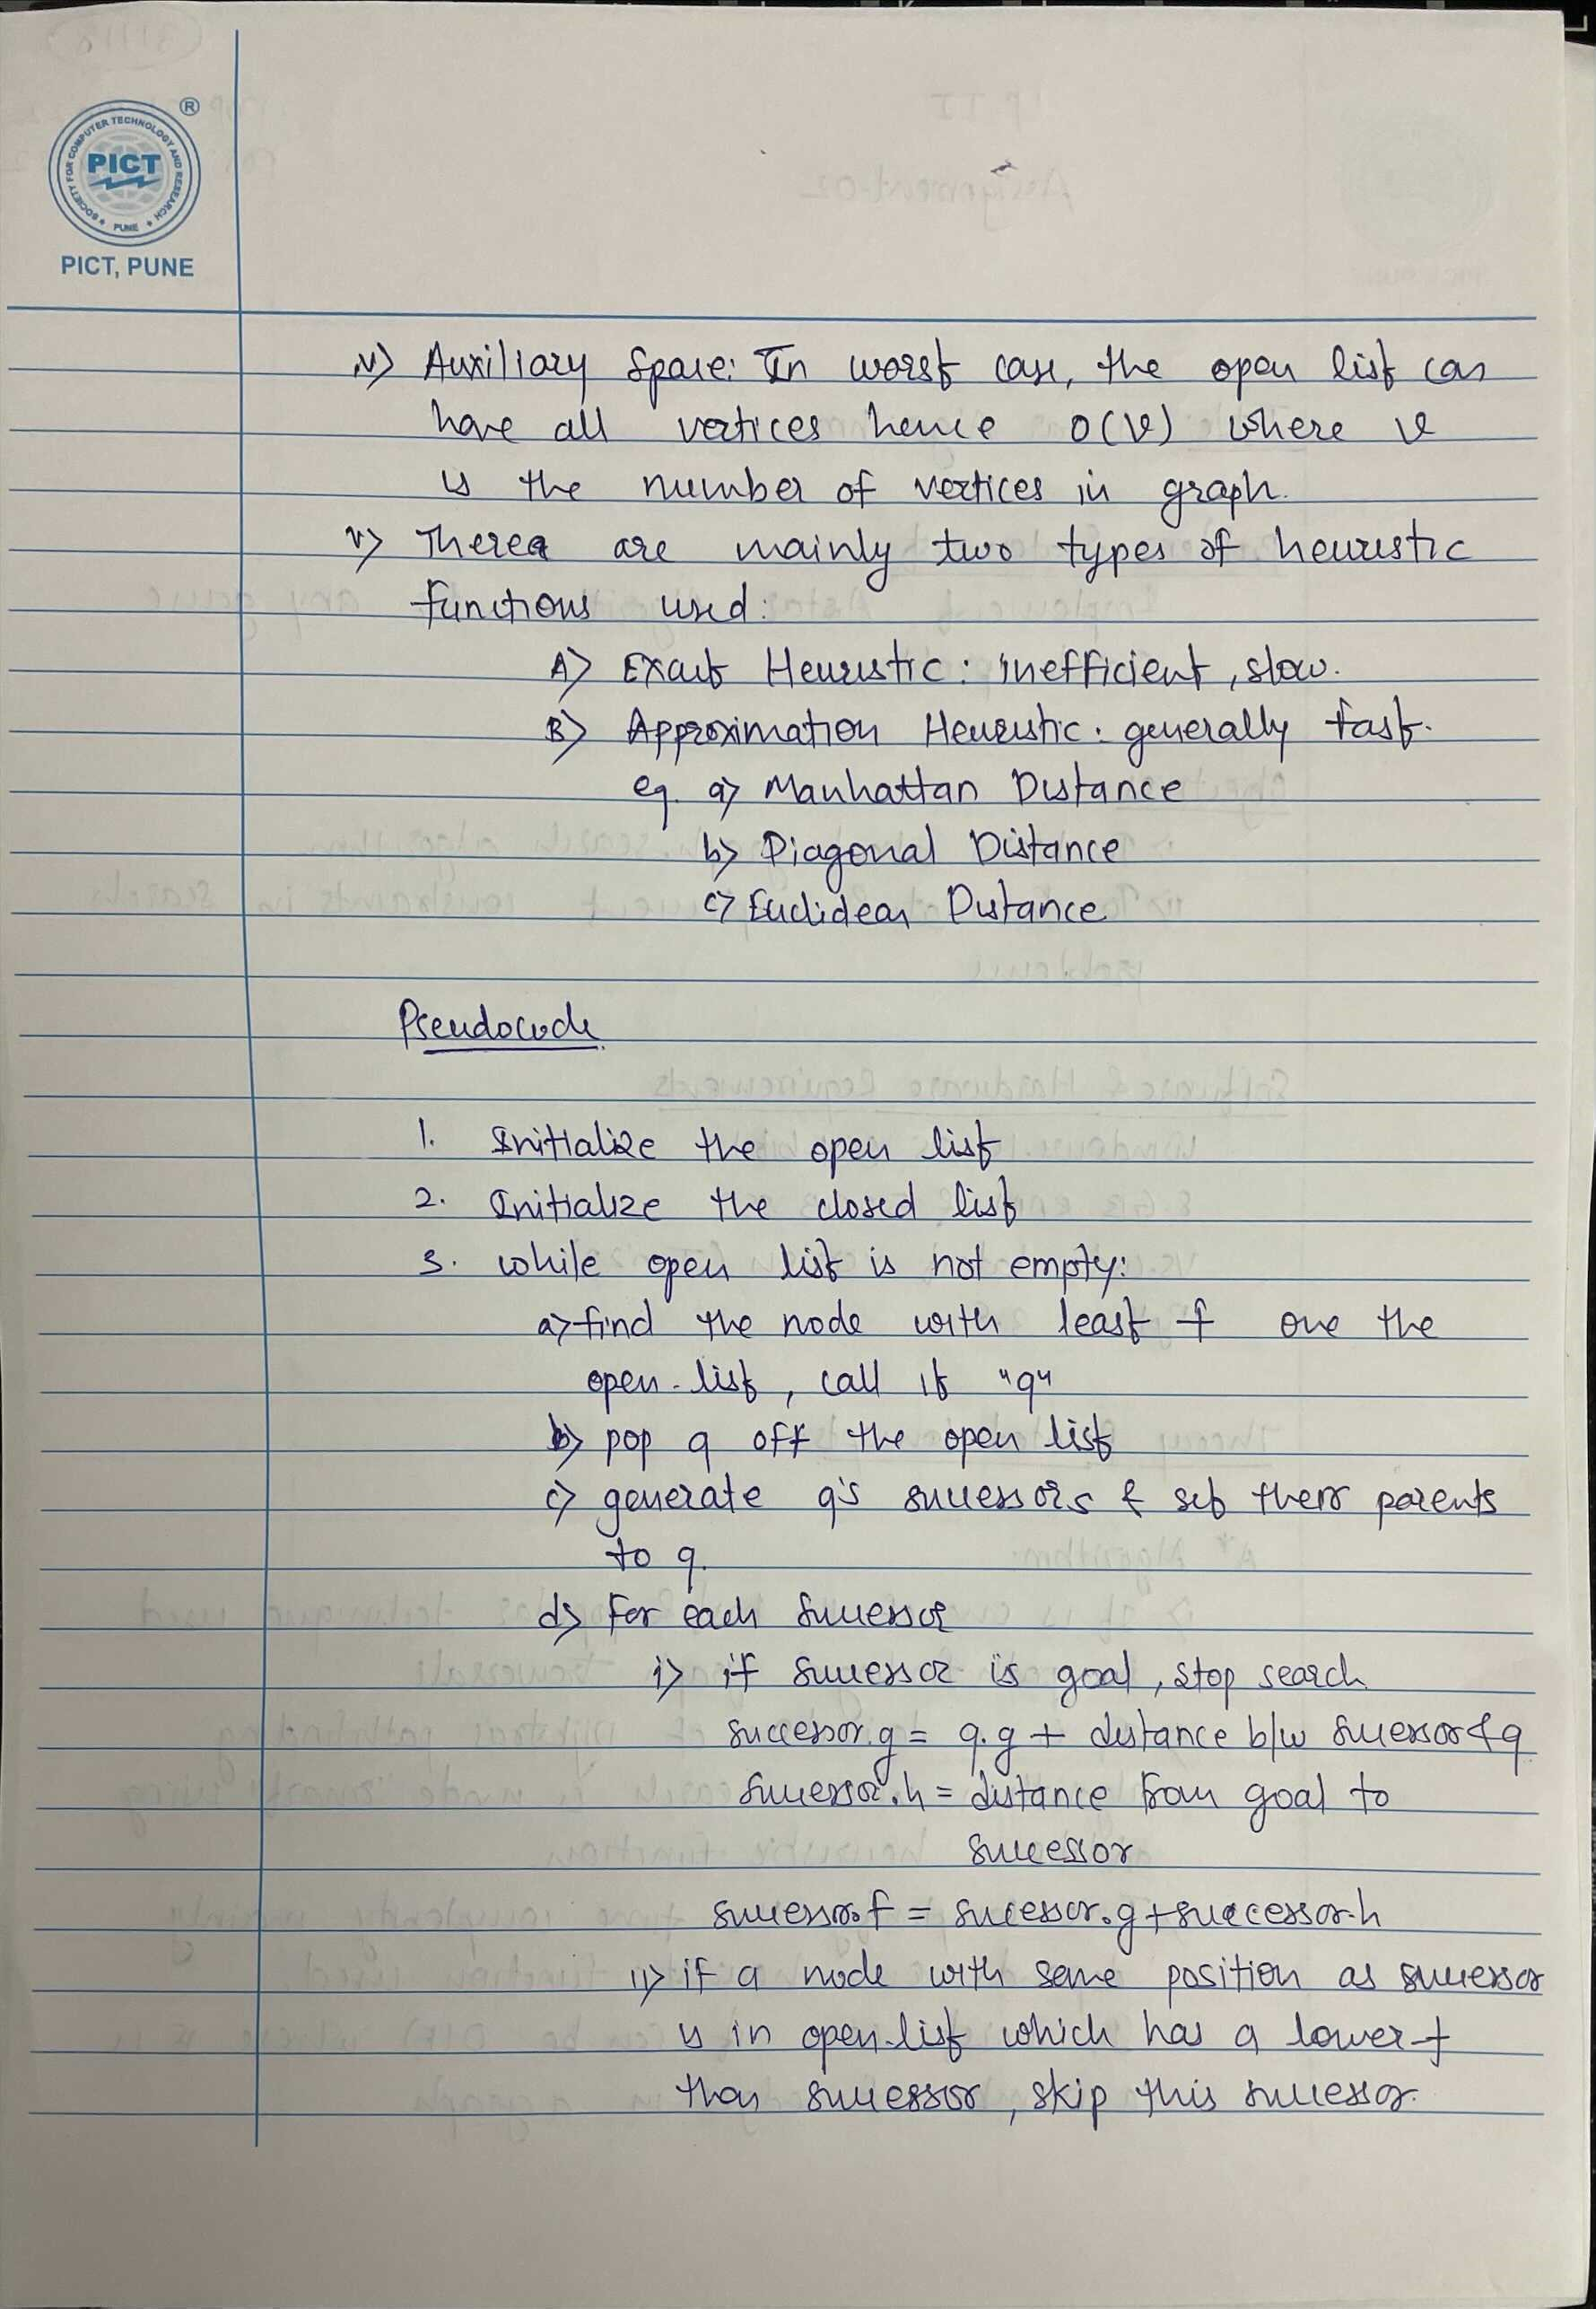 SOCIETY FOR COMPUTER TECHNOLOGY AND RESEARCH
PICT
PUNE
®
PICT, PUNE
iv) Auxiliary Space: In worst case, the open list can
have all vertices hence O(V) where V
is the number of vertices in graph.
v) There are mainly two types of heuristic
functions used:
A) Exact Heuristic: inefficient, slow.
B) Approximation Heuristic: generally fast.
eg. a) Manhattan Distance
b) Diagonal Distance
c) Euclidean Distance
Pseudocode
1. Initialize the open list
2. Initialize the closed list
3. while open list is not empty:
a) find the node with least f one the
open-list, call it "q"
b) pop q off the open list
c) generate q's successors & set their parents
to q.
d) for each successor
i) if successor is goal, stop search
successor.g = q.g + distance b/w sucessor & q
successor.h = distance from goal to
successor
successor.f = sucessor.g + successor.h
ii) if a node with same position as successor
is in open-list which has a lower f
than successor, skip this successor.